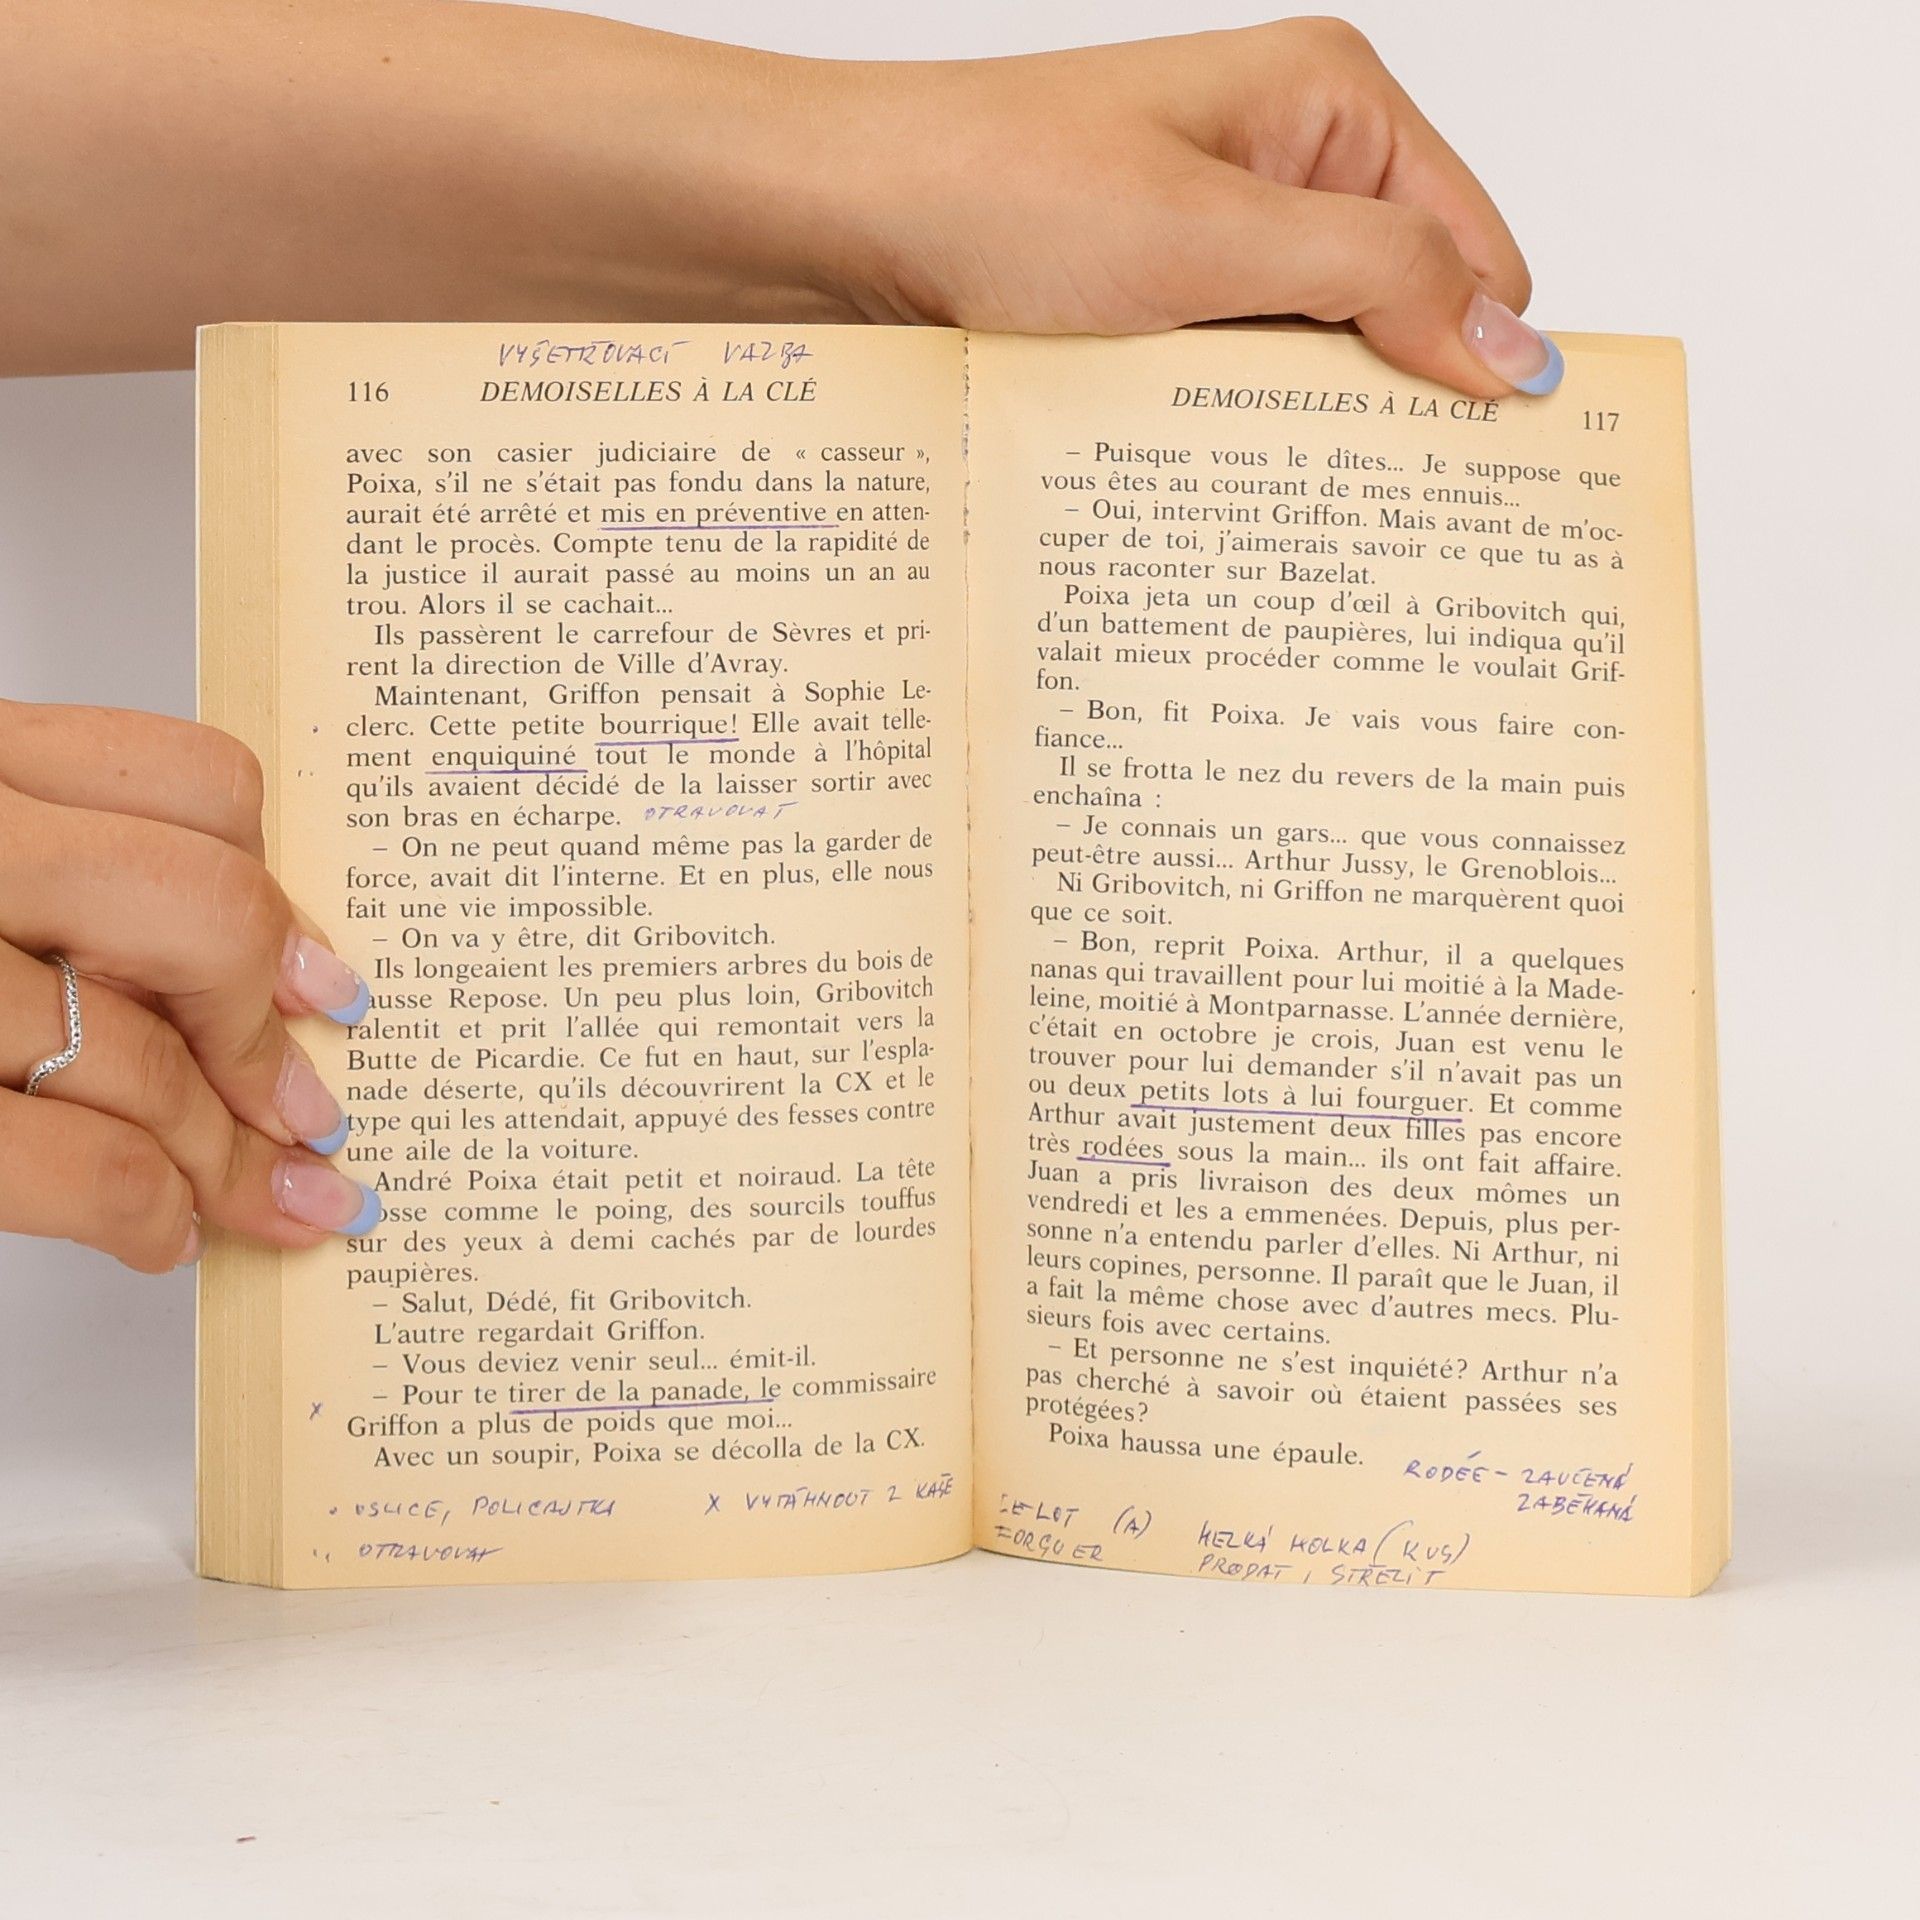 VYŠETŘOVACÍ VAZBA
116 DEMOISELLES À LA CLÉ
avec son casier judiciaire de « casseur »,
Poixa, s'il ne s'était pas fondu dans la nature,
aurait été arrêté et mis en préventive en atten-
dant le procès. Compte tenu de la rapidité de
la justice il aurait passé au moins un an au
trou. Alors il se cachait...
Ils passèrent le carrefour de Sèvres et pri-
rent la direction de Ville d'Avray.
Maintenant, Griffon pensait à Sophie Le-
clerc. Cette petite bourrique! Elle avait telle-
ment enquiquiné tout le monde à l'hôpital
qu'ils avaient décidé de la laisser sortir avec
son bras en écharpe. OTRAVOVAT
– On ne peut quand même pas la garder de
force, avait dit l'interne. Et en plus, elle nous
fait une vie impossible.
– On va y être, dit Gribovitch.
Ils longeaient les premiers arbres du bois de
ausse Repose. Un peu plus loin, Gribovitch
ralentit et prit l'allée qui remontait vers la
Butte de Picardie. Ce fut en haut, sur l'espla-
nade déserte, qu'ils découvrirent la CX et le
type qui les attendait, appuyé des fesses contre
une aile de la voiture.
André Poixa était petit et noiraud. La tête
osse comme le poing, des sourcils touffus
sur des yeux à demi cachés par de lourdes
paupières.
– Salut, Dédé, fit Gribovitch.
L'autre regardait Griffon.
– Vous deviez venir seul... émit-il.
– Pour te tirer de la panade, le commissaire
x
Griffon a plus de poids que moi...
Avec un soupir, Poixa se décolla de la CX.
OSLICE, POLICAJTKA x VYTÁHNOUT Z KAŠE
OTRAVOVAT
DEMOISELLES À LA CLÉ 117
– Puisque vous le dîtes... Je suppose que
vous êtes au courant de mes ennuis...
– Oui, intervint Griffon. Mais avant de m'oc-
cuper de toi, j'aimerais savoir ce que tu as à
nous raconter sur Bazelat.
Poixa jeta un coup d'œil à Gribovitch qui,
d'un battement de paupières, lui indiqua qu'il
valait mieux procéder comme le voulait Grif-
fon.
– Bon, fit Poixa. Je vais vous faire con-
fiance...
Il se frotta le nez du revers de la main puis
enchaîna :
– Je connais un gars... que vous connaissez
peut-être aussi... Arthur Jussy, le Grenoblois...
Ni Gribovitch, ni Griffon ne marquèrent quoi
que ce soit.
– Bon, reprit Poixa. Arthur, il a quelques
nanas qui travaillent pour lui moitié à la Made-
leine, moitié à Montparnasse. L'année dernière,
c'était en octobre je crois, Juan est venu le
trouver pour lui demander s'il n'avait pas un
ou deux petits lots à lui fourguer. Et comme
Arthur avait justement deux filles pas encore
très rodées sous la main... ils ont fait affaire.
Juan a pris livraison des deux mômes un
vendredi et les a emmenées. Depuis, plus per-
sonne n'a entendu parler d'elles. Ni Arthur, ni
leurs copines, personne. Il paraît que le Juan, il
a fait la même chose avec d'autres mecs. Plu-
sieurs fois avec certains.
– Et personne ne s'est inquiété? Arthur n'a
pas cherché à savoir où étaient passées ses
protégées?
Poixa haussa une épaule.
RODÉE – ZAUČENÁ
ZABĚHANÁ
LOT (A) HEZKÁ HOLKA (KUS)
PRODAT, STŘELIT